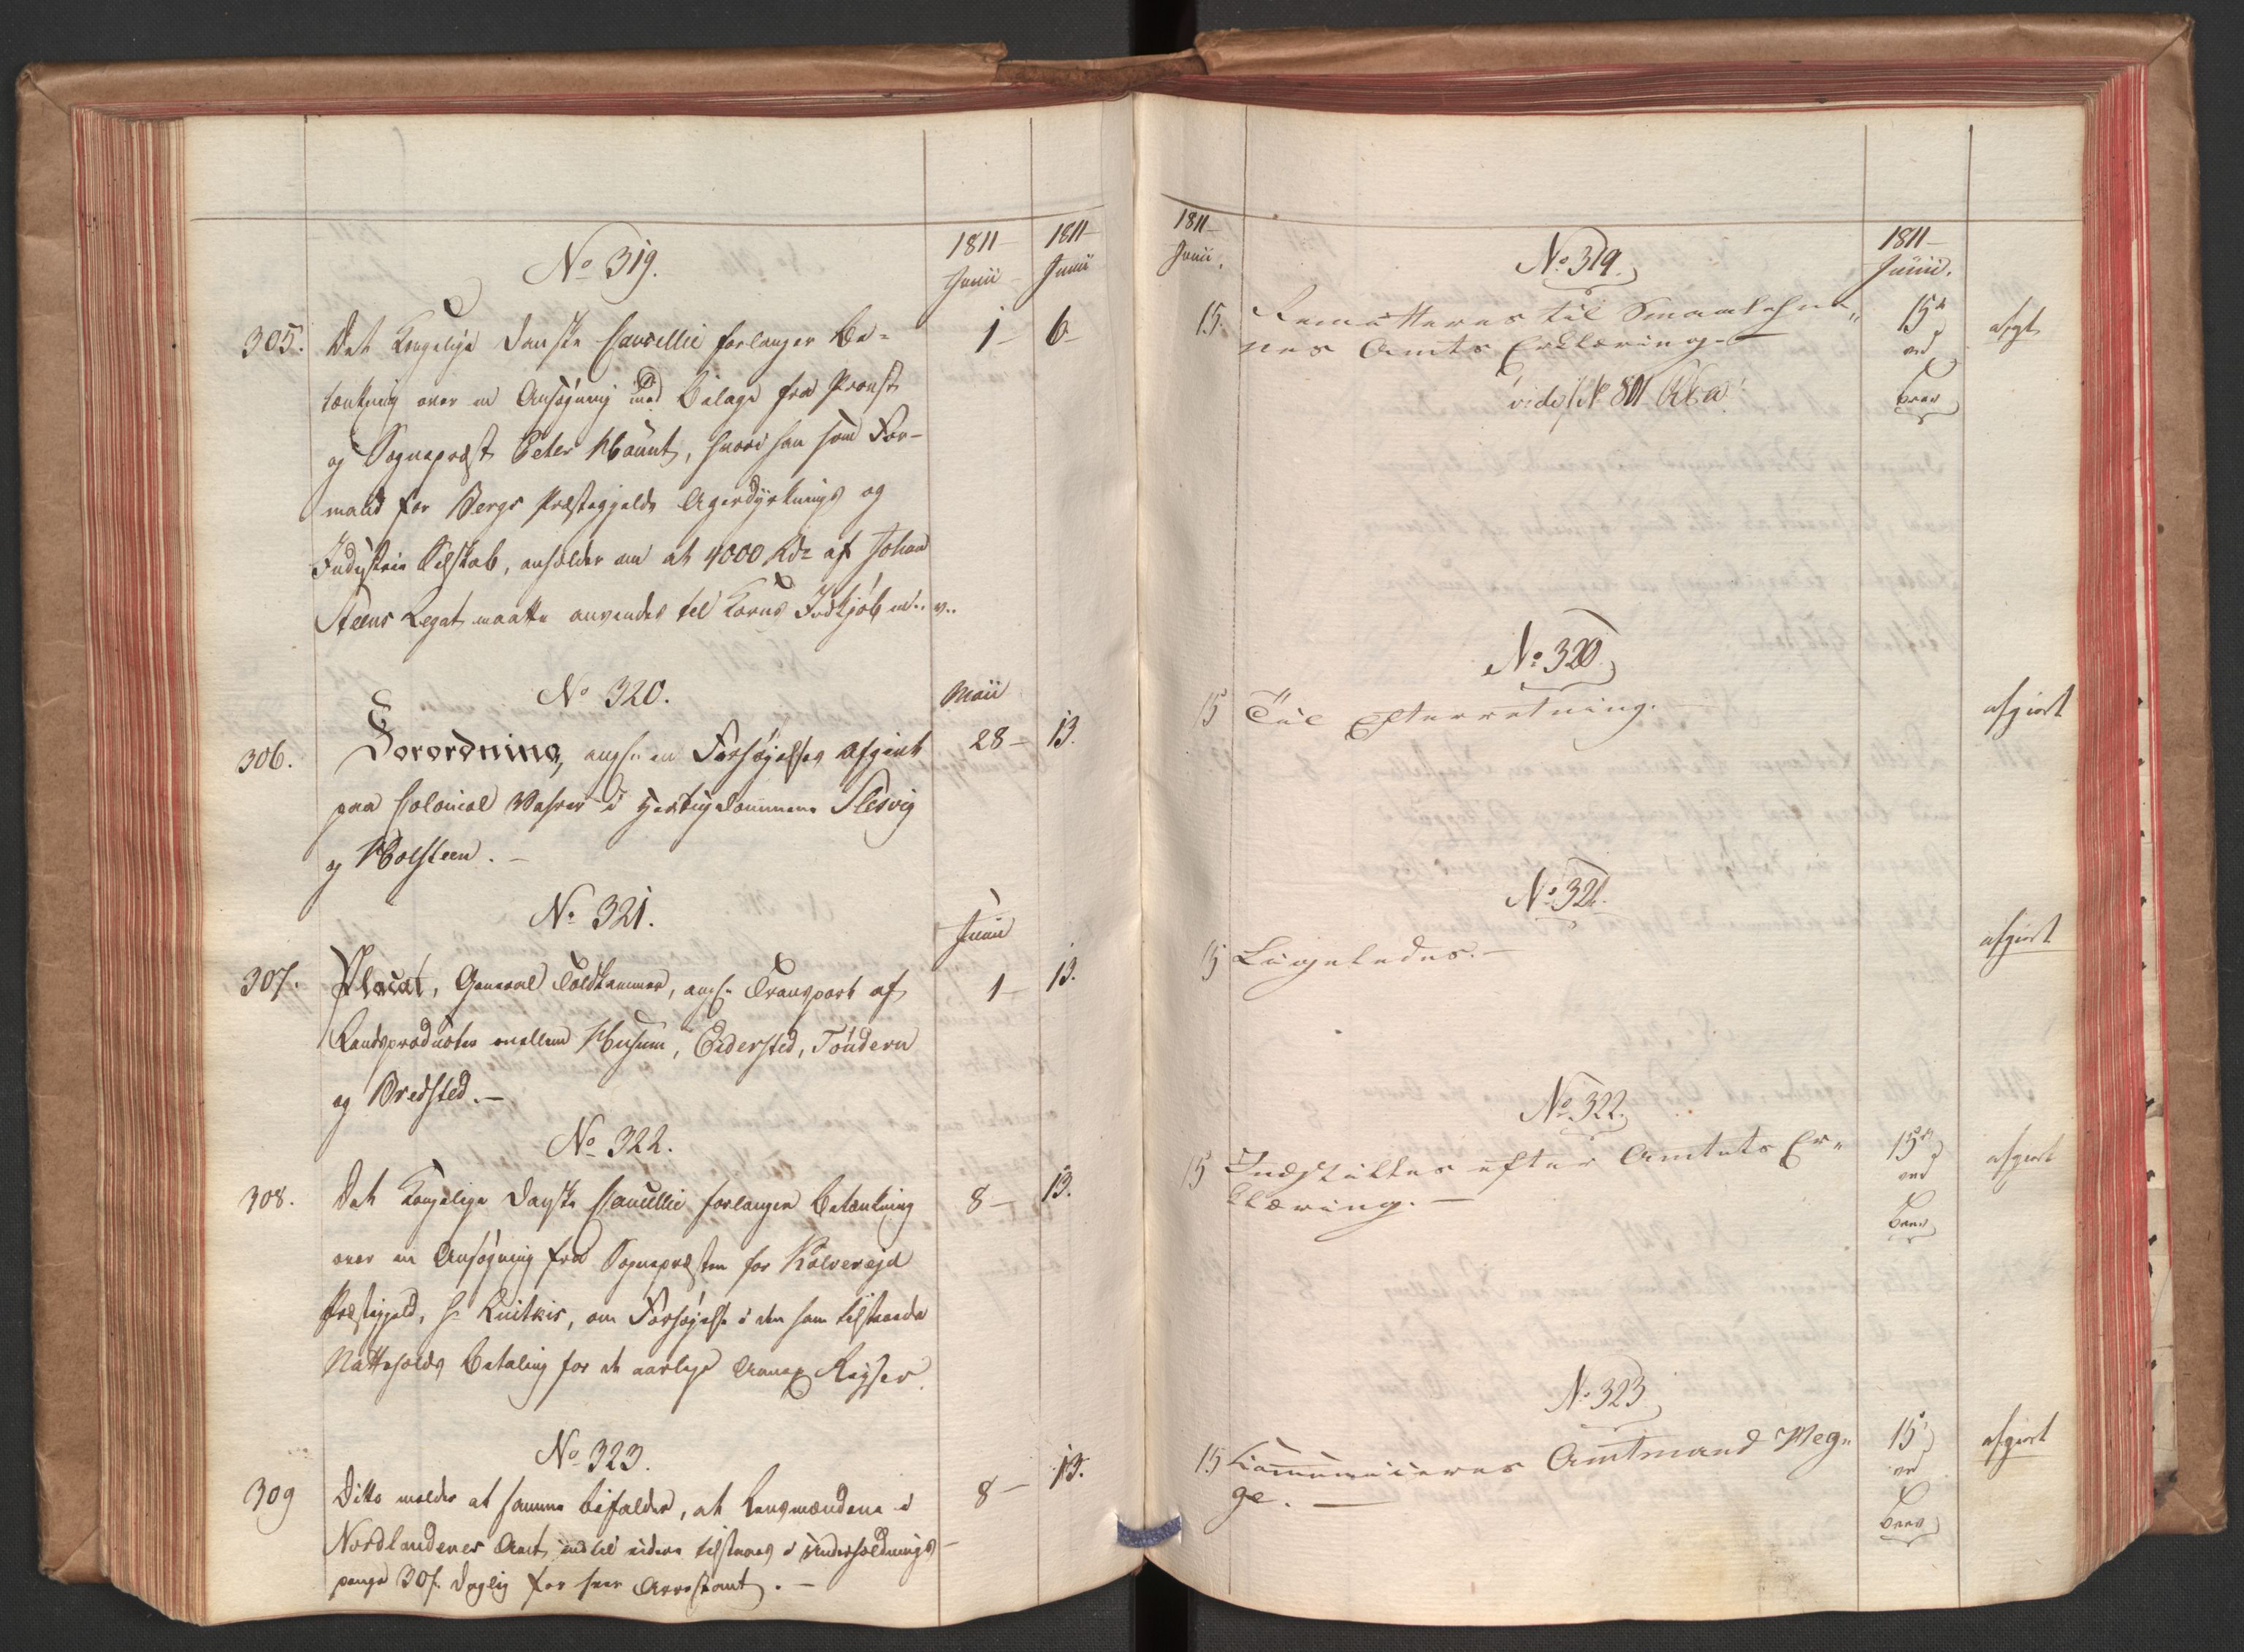 1811
Junii
1811
Junii
No 319.
305.
Det Kongelige Danske Cancellie forlanger Be=
tænkning over en Ansøgning med Bilage fra Provst
og Sognepræst Peter Hount, hvori han som For-
mand for Bergs Præstegjelds Agerdyrknings og
Industrie Selskab, anholder om at 4000 Rdr af Johan
Steens Legat maatte anvendes til Korns Indkjøb m. v.
1 -
6 -
No 320.
Maii
306.
Forordning, angn en Forhøjelses Afgivt
paa Colonial Wahrer i Hertugdømmene Slesvig
og Holsteen. -
28 -
13.
No 321.
Junii
307.
Placat, General Toldkammer, angn Transport af
Landsproducter mellem Husum, Eidersted, Tøndern
og Bredsted. -
1 -
13.
No 322.
308.
Det Kongelige Danske Cancellie forlanger Betænkning
over en Ansøgning fra Sognepræsten for Kolvereid
Præstegjeld, Hr , om Forhøjelse i den ham tilstaaede
Natteholds Betaling for de aarlige Annex Reyser.
8 -
13.
No 323.
309
Ditto melder at samme bifalder, at Lensmændene i
Nordlandenes Amt indtil videre tilstaaes i Underholdnings-
penge 30 s. daglig for hver Arrestant. -
8 -
13.
1811 -
Junii.
1811 -
Junii.
No 319.
15.
Remitteres til Smaalehne„
nes Amts Erklæring. -
vide
15de
ved
Brev
afgt
No 320.
15
Til Efterretning.
afgiort
No 321.
15
Ligeledes. -
afgiort
No 322.
15
Indstilles efter Amtets Er„
klæring. -
15de
ved
Brev
afgiort
No 323
15
Kommuniceres Amtmand Heg„
ge. -
15
ved
Brev
afgiort